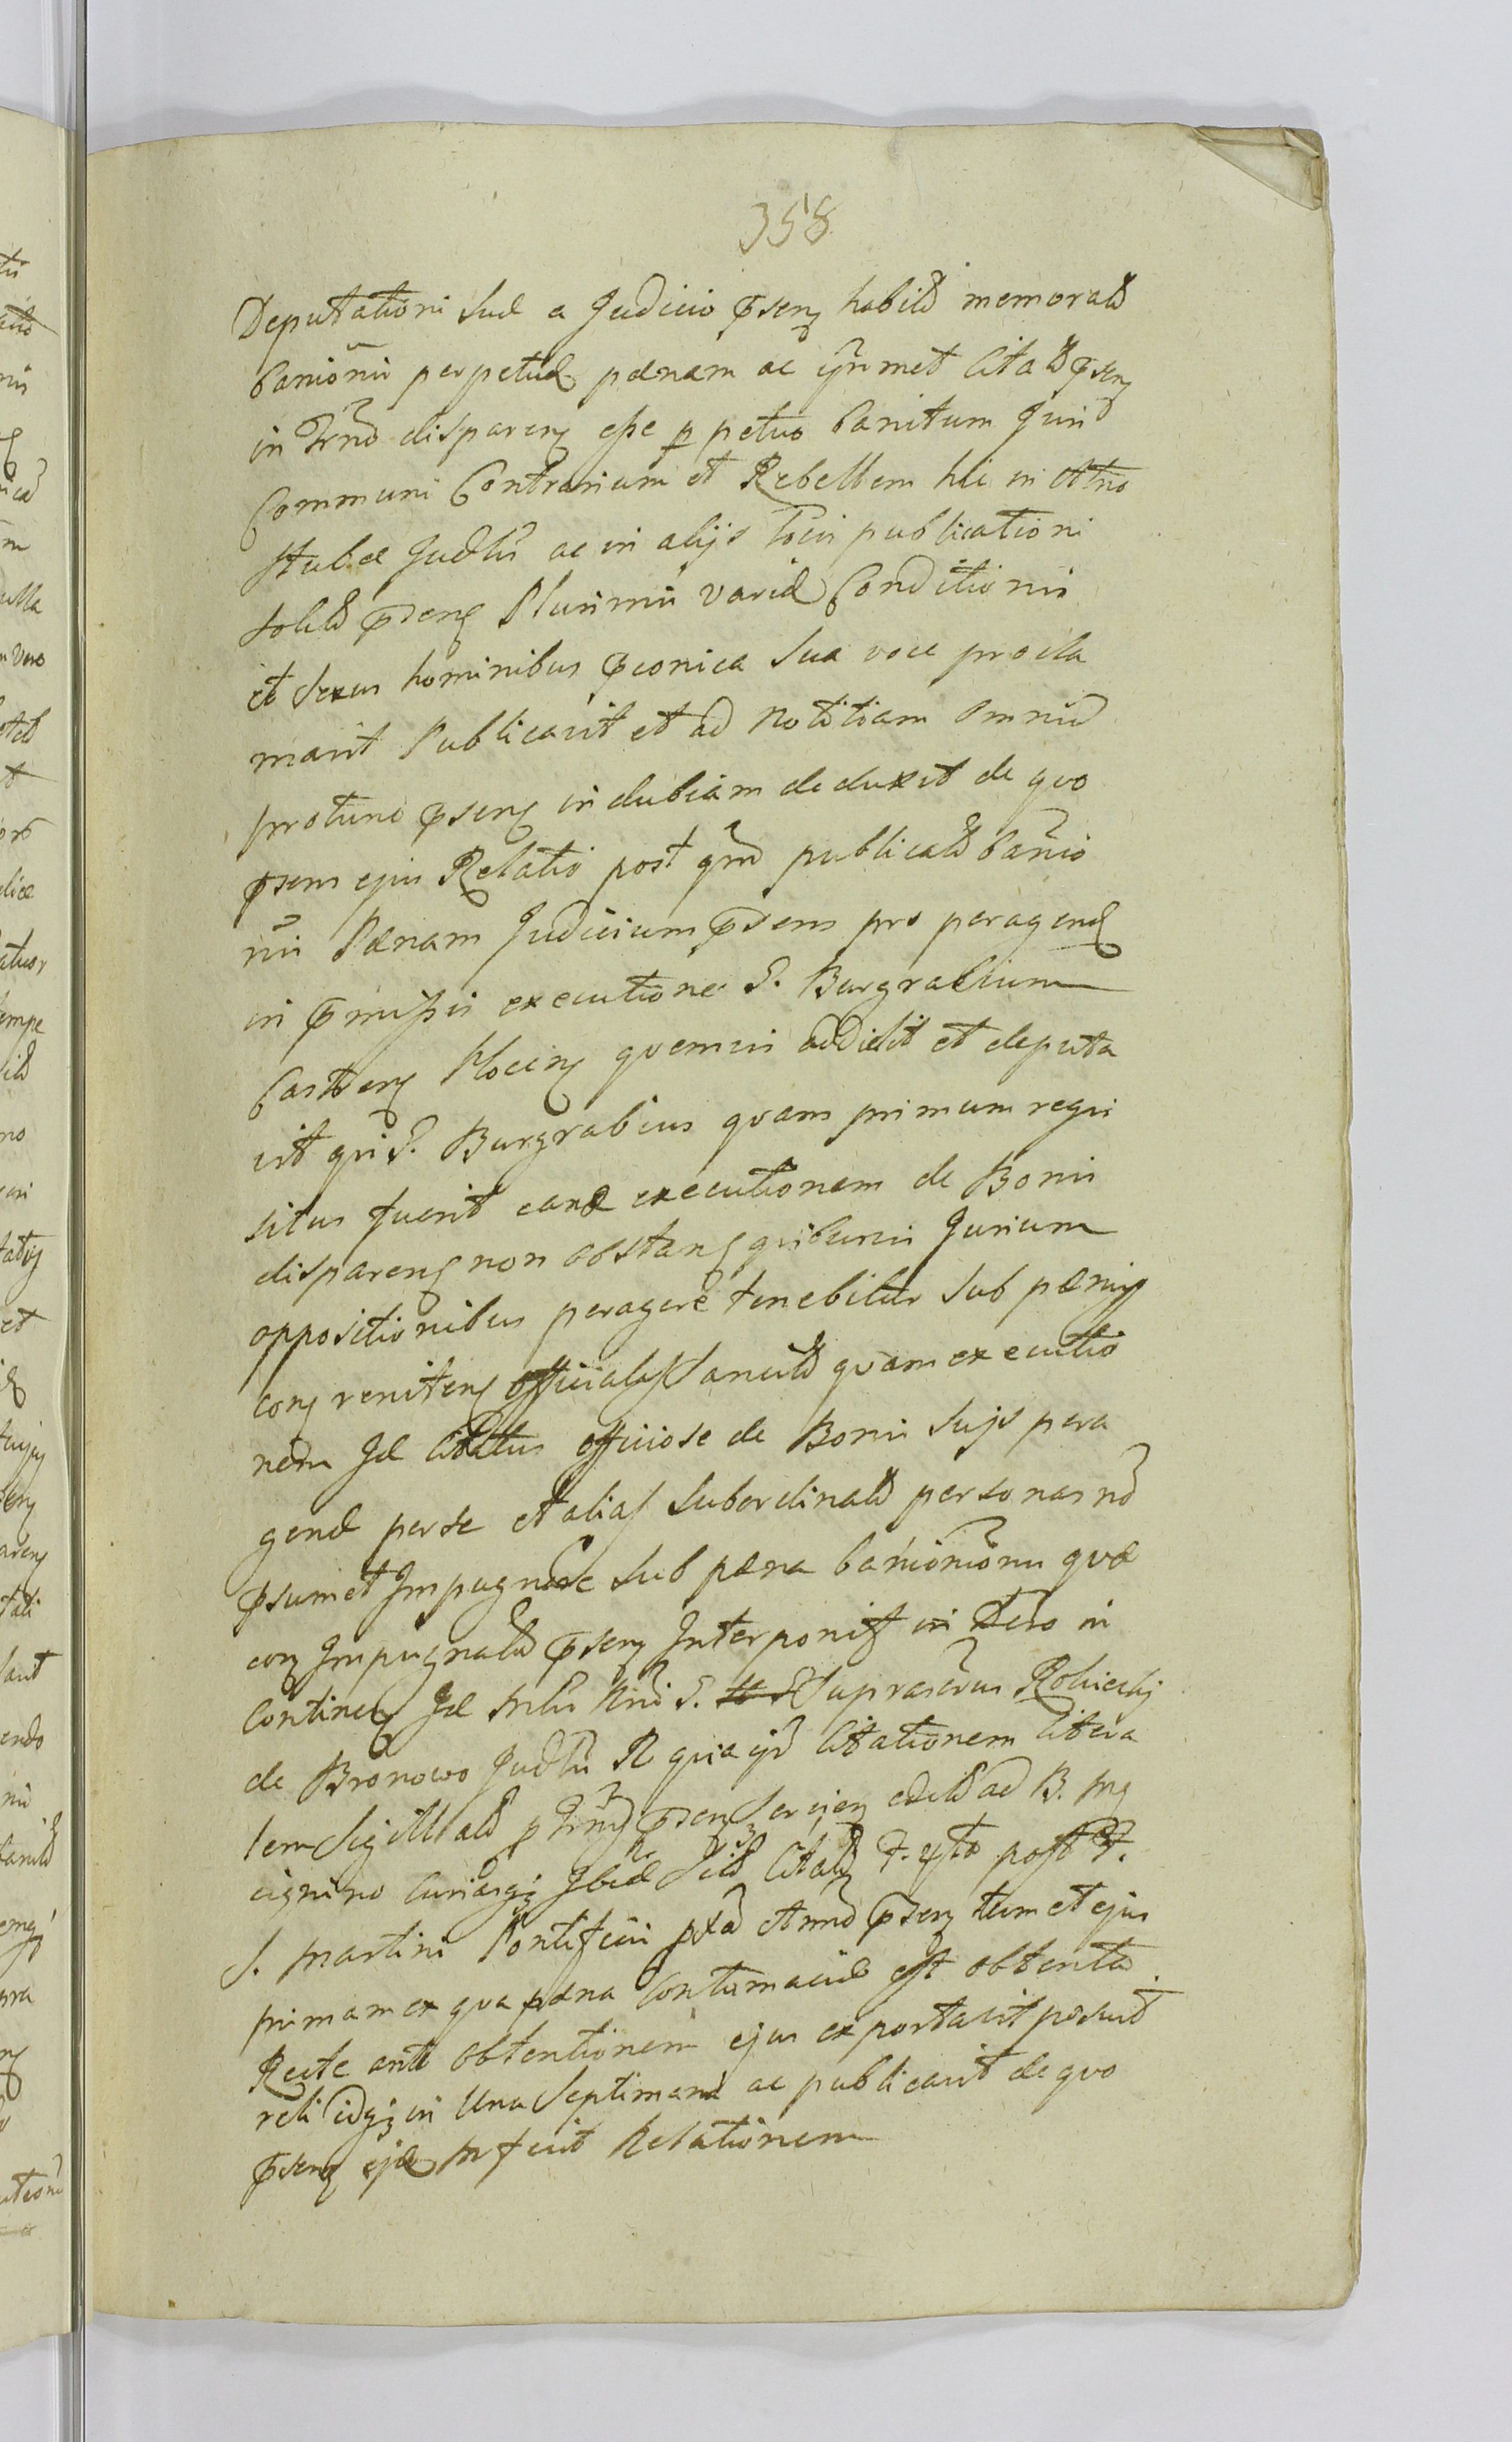 358
Deputationi suæ a Judicio p̄sen habitꝫ memoratꝫ
banionis perpetuæ pænam ac ip̄ummet Citatꝫ p̄sen
in Trno disparen esse perpetuo banitum Juri
Communi Contrarium et Rebellem hic in Atrio
stubæ Judlis ac in alijs locis publicationi
solitꝫ p̄sen Plurimis variæ Conditionis
et sexus hominibus p̄conica sua voce procla
mavit Publicavit et ad notitiam omniū
protunc p̄sen indubiam deduxit de quo
p̄sens ejus Relatio post qm̄ publicatꝫ banio
nis Pænam Judicium p̄sens pro peragend
in p̄missis executione S. Burgrabium
Castren Plocen quemvis addidit et deputa
vit qui S. Burgrabius quam primum requi
situs fuerit eand executionem de Bonis
disparen non obstan quibusvis Jurium
oppositionibus peragere tenebitur sub pænis
con reniten officiales sancitꝫ quam executio
nem Id Citatus officiose de Bonis suis pera
gend per se et alias subordinatꝫ personas nō
p̄sumet Impugnare sub pæna banionionis quæ
con Impugnatꝫ p̄sen Interponit in Dcto in
Continen Id
S. suprascrus Robiecky
de Bronowo Judlis R quia ip̄e Citationem litera
lem sigillatꝫ p Trno p̄sen ser
editꝫ ad B.
curiasqꝫ Ibid
Citatꝫ F.
post F.
S. Martini Pontificis
Anno p̄sen tum et ejus
primam ex qua pæna Contumaciæ est obtenta
Recte ante obtentionem ejus exportavit posuit
reliidqꝫ in Una septimana ac publicavit de quo
p̄sen ejꝫ fecit Relationem